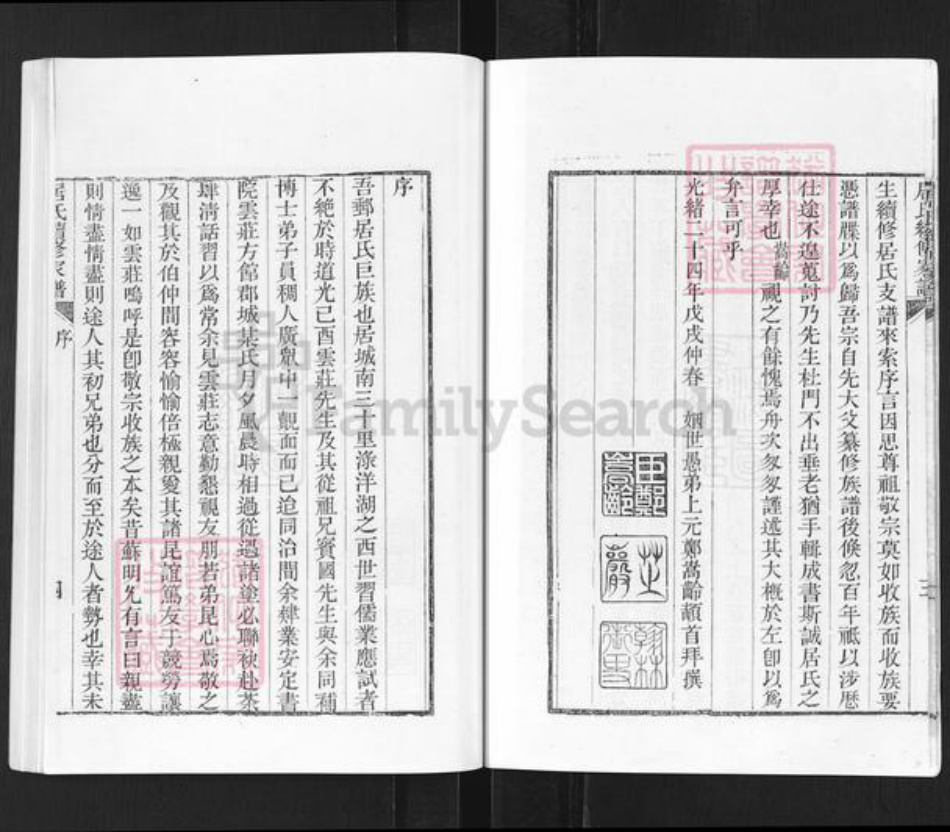 居氏續修家譜
三
生續修居氏支譜來索序言因思尊祖敬宗莫如收族而收族要
憑譜牒以爲歸吾宗自先大父纂修族譜後倏忽百年祗以涉歷
仕途不遑蒐討乃先生杜門不出垂老猶手輯成書斯誠居氏之
厚幸也嵩齡視之有餘愧焉舟次匆匆謹述其大槪於左卽以爲
弁言可乎
光緒二十四年戊戌仲春 姻世愚弟上元鄭嵩齡頓首拜撰
臣鄭嵩齡
芝巖
翰林
序
吾郵居氏巨族也居城南三十里渌洋湖之西世習儒業應試者
不絶於時道光己酉雲莊先生及其從祖兄賓國先生與余同補
博士弟子員稠人廣衆中一覿面而已迨同治間余肄業安定書
院雲莊方館郡城某氏月夕風晨時相過從遇諸塗必聯袂赴茶
肆淸話習以爲常余見雲莊志意勤懇視友朋若弟昆心焉敬之
及觀其於伯仲間容容愉愉倍極親愛其諸昆誼篤友于競勞讓
逸一如雲莊嗚呼是卽敬宗收族之本矣昔蘇明允有言曰親盡
則情盡情盡則途人其初兄弟也分而至於途人者勢也幸其未
居氏續修家譜
序
四
FamilySearch